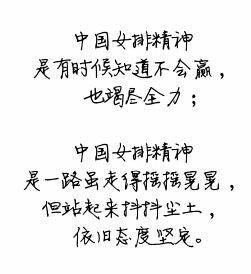 中国女排精神
是有时候知道不会赢，
也竭尽全力；
中国女排精神
是一路虽走得摇摇晃晃，
但站起来抖抖尘土，
依旧态度坚定。